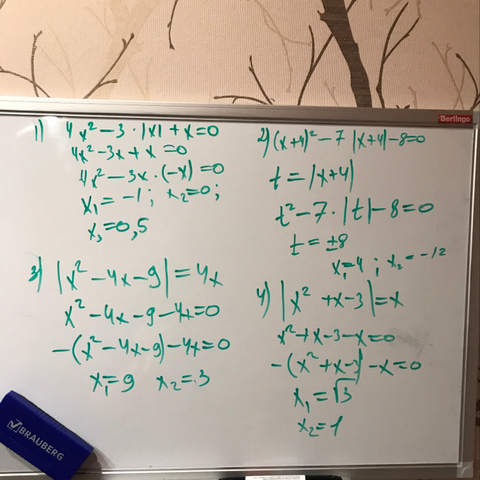 Berlingo
1) 4x² – 3 · |x| + x = 0
4x² – 3x + x = 0
4x² – 3x · (–x) = 0
x₁ = –1 ; x₂ = 0 ;
x₃ = 0,5
2) (x+4)² – 7 |x+4| – 8 = 0
t = |x+4|
t² – 7 · |t| – 8 = 0
t = ±8
x₁ = 4 ; x₂ = –12
3) |x² – 4x – 9| = 4x
x² – 4x – 9 – 4x = 0
–(x² – 4x – 9) – 4x = 0
x₁ = 9 x₂ = 3
4) |x² + x – 3| = x
x² + x – 3 – x = 0
–(x² + x – 3) – x = 0
x₁ = √3
x₂ = 1
BRAUBERG